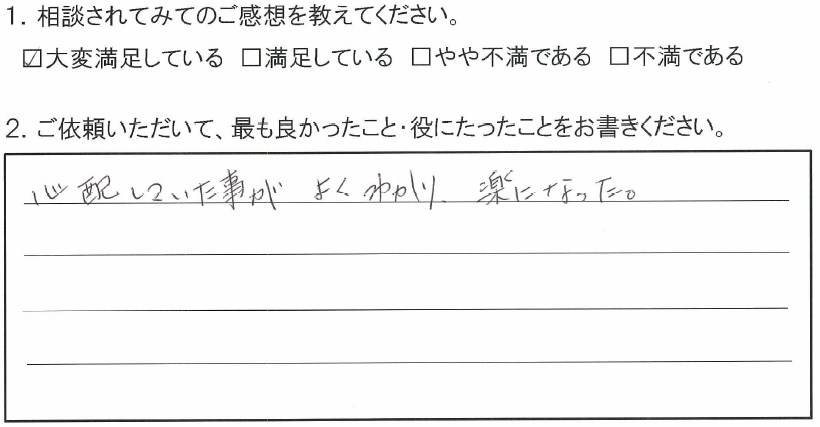 1. 相談されてみてのご感想を教えてください。
☑大変満足している □満足している □やや不満である □不満である
2. ご依頼いただいて、最も良かったこと・役にたったことをお書きください。
心配していた事が よく わかり、楽になった。